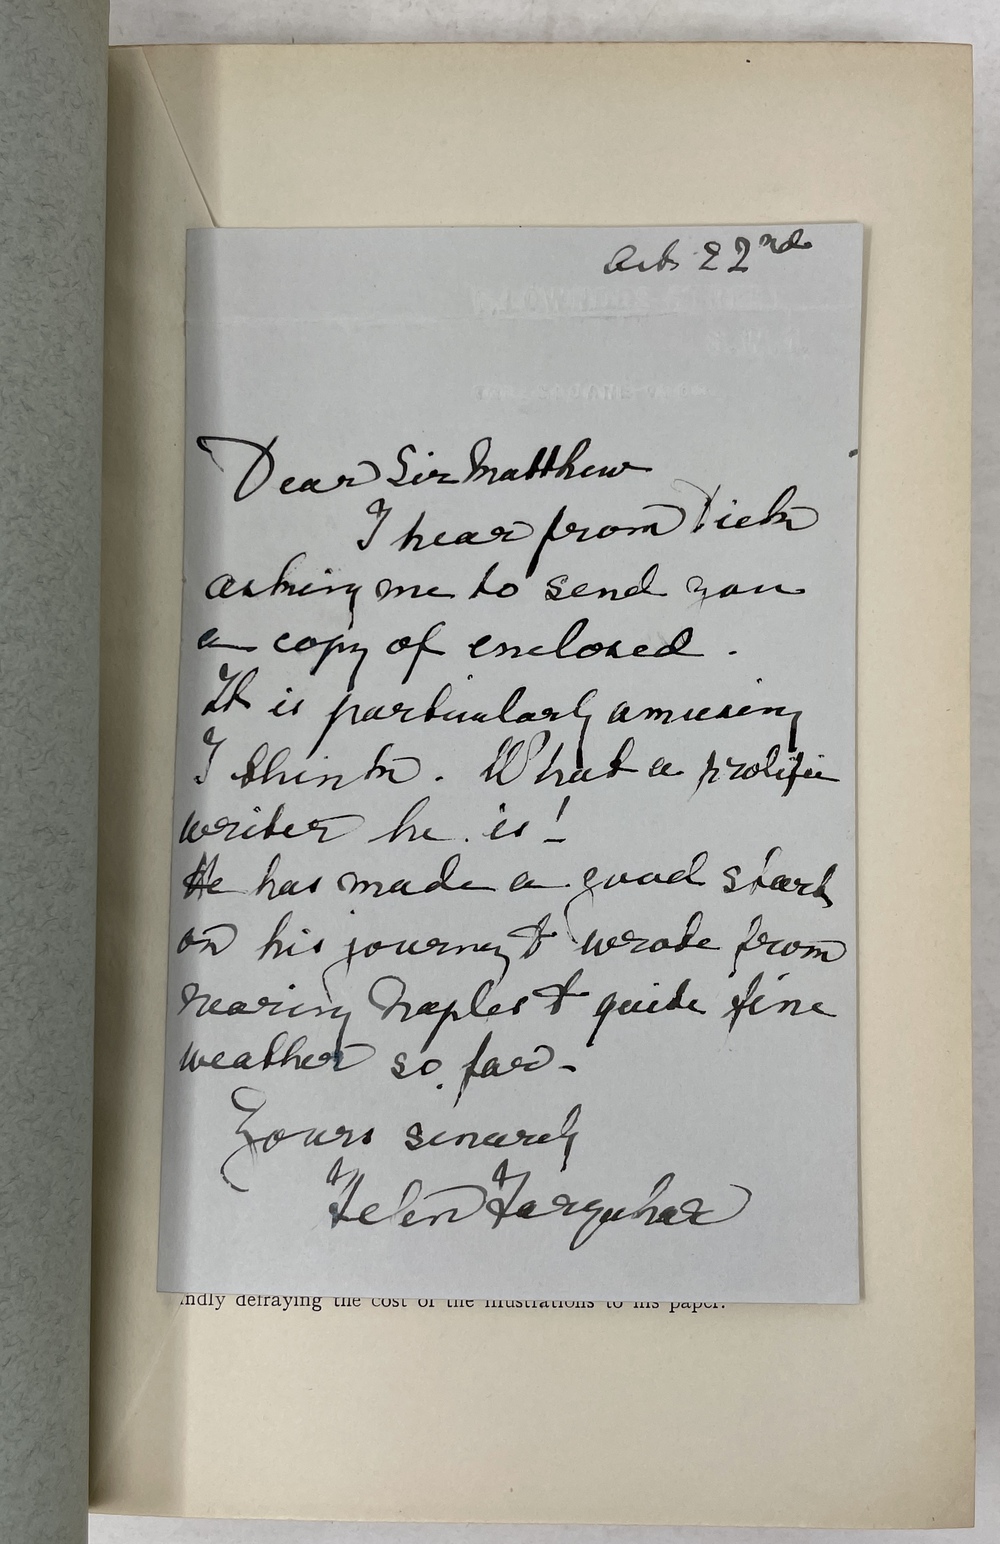 Oct. 22nd
Dear Sir Matthew
I hear from Dick
asking me to send you
a copy of enclosed.
It is particularly amusing
I think. What a prolific
writer he is!
He has made a good start
on his journey & wrote from
nearing Naples & quite fine
weather so far -
Yours sincerely
Helen Farquhar
ndly defraying the cost of the illustrations to his paper.